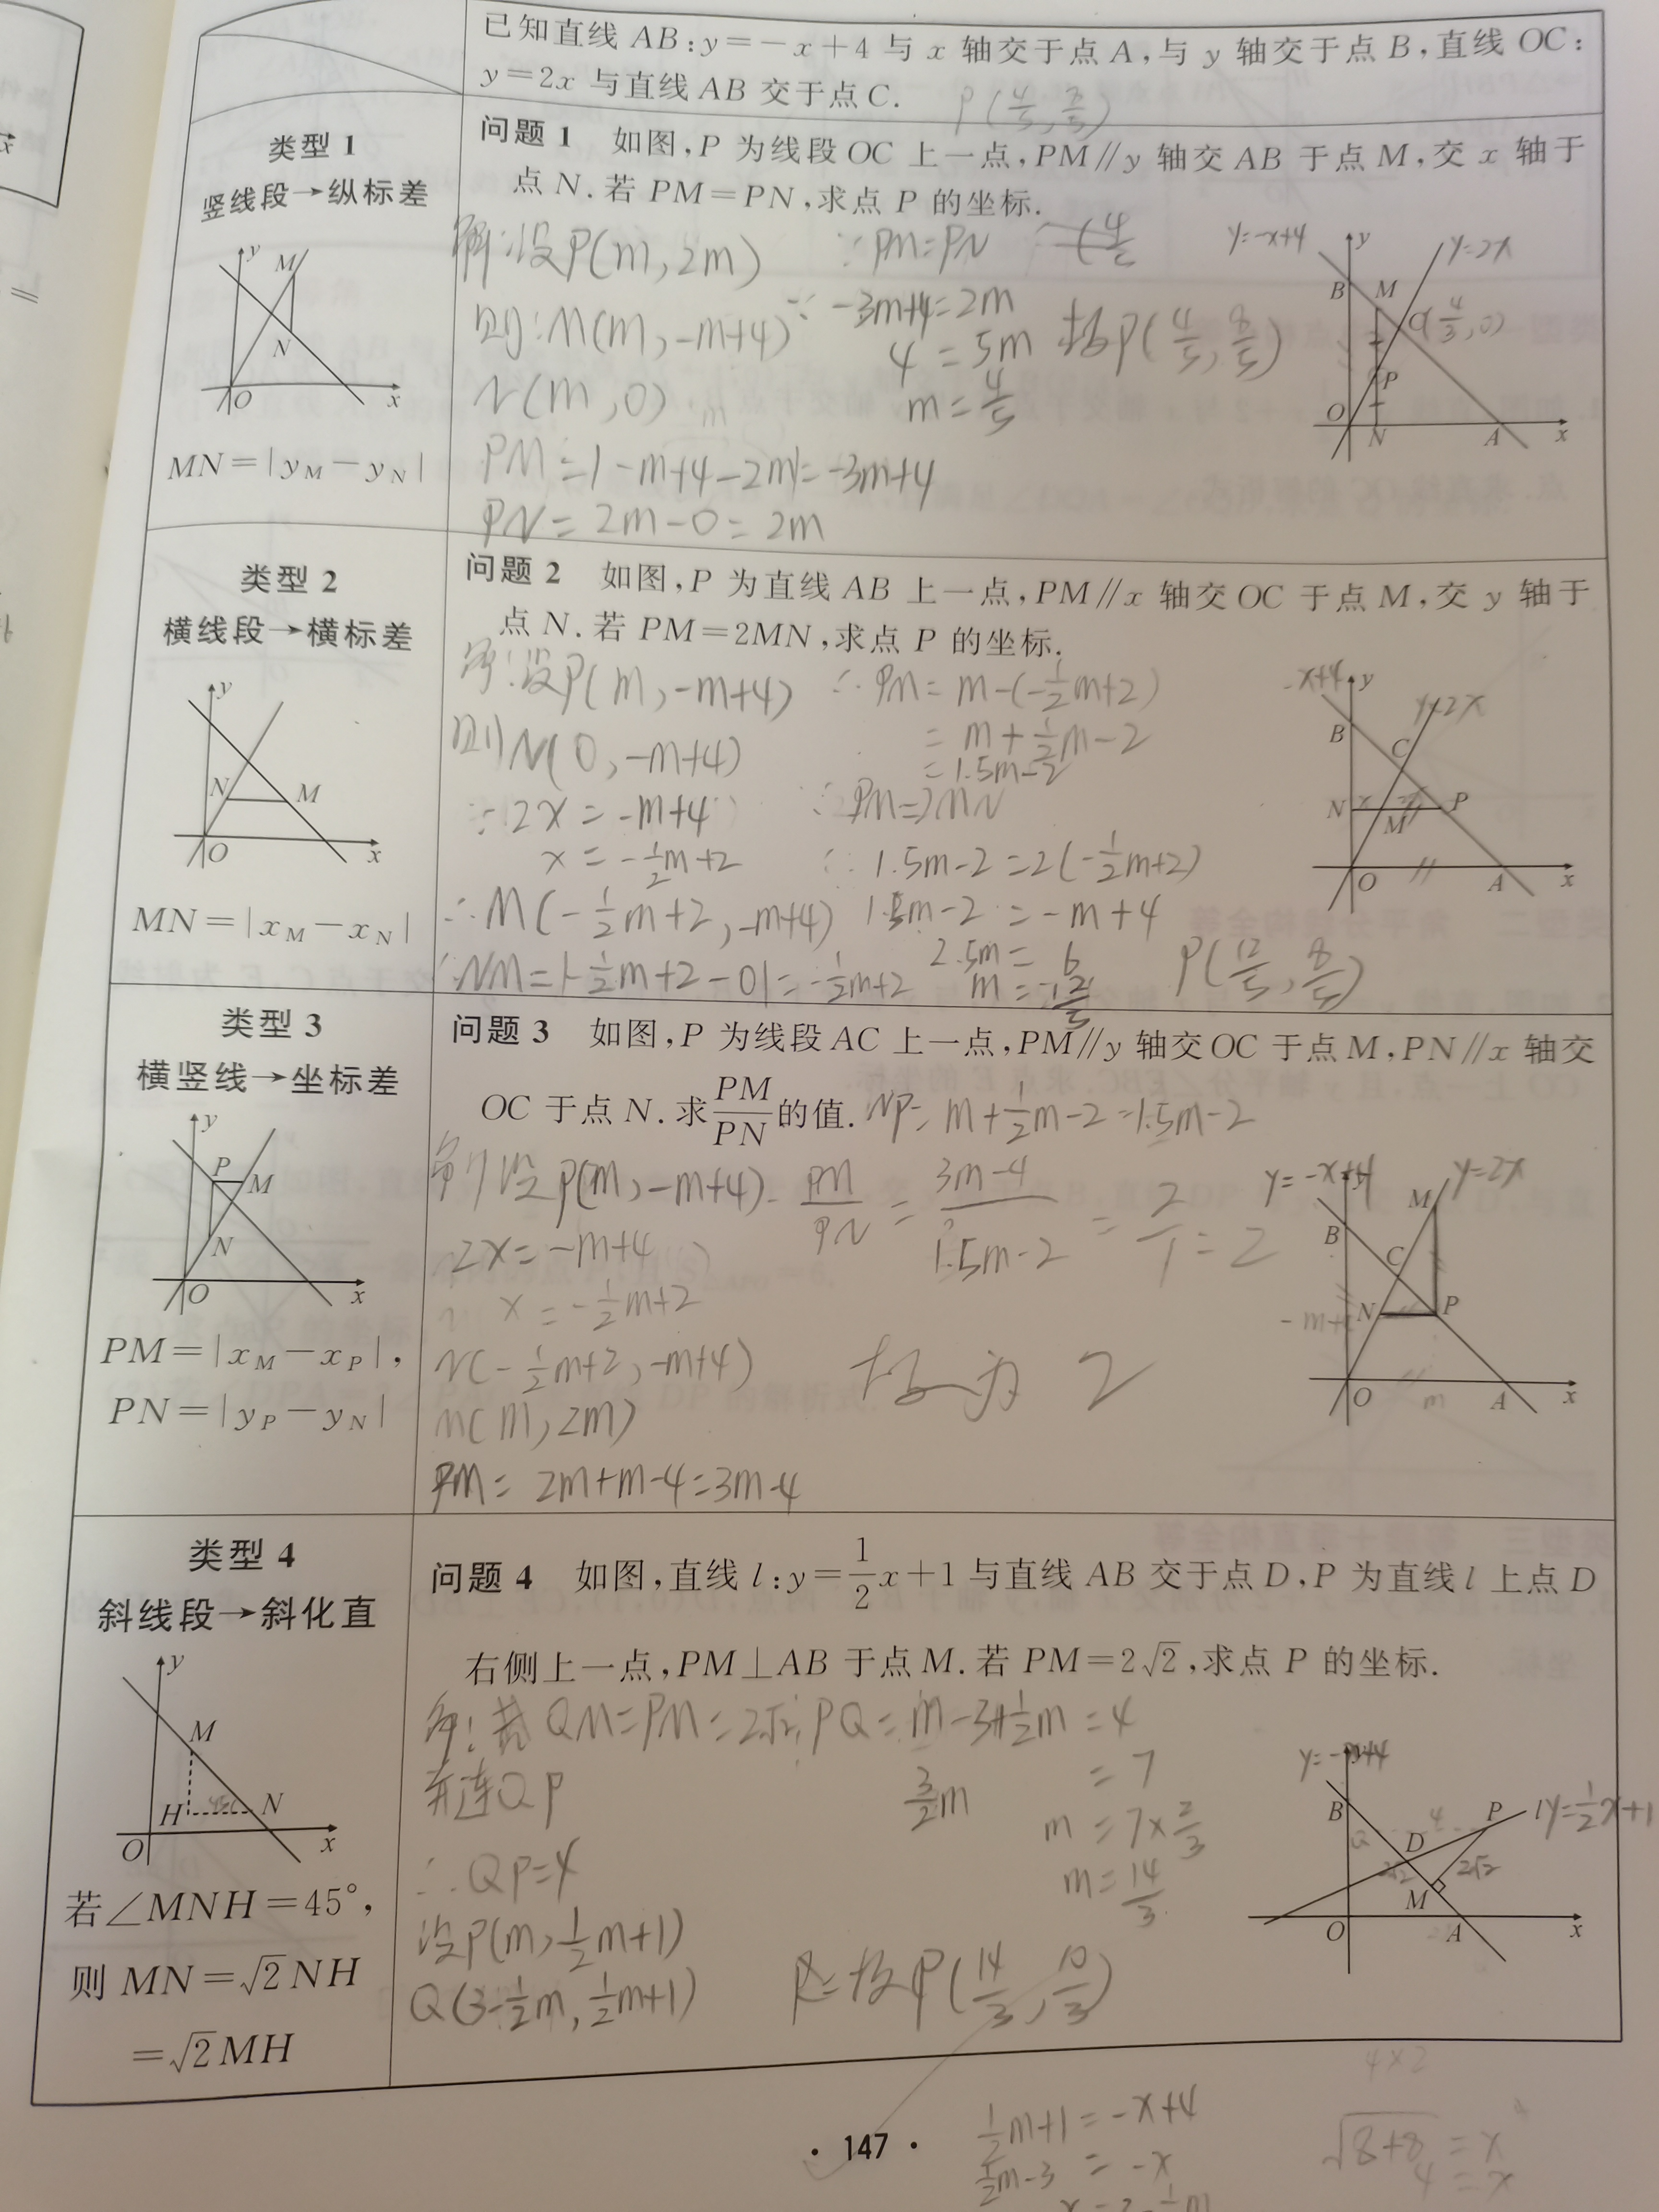 已知直线 AB:y=-x+4 与 x 轴交于点 A,与 y 轴交于点 B,直线 OC:
y=2x 与直线 AB 交于点 C.
P(4/5, 8/5)
类型 1
竖线段→纵标差
y
M
N
O
x
MN=|y_M-y_N|
问题 1 如图,P 为线段 OC 上一点,PM∥y 轴交 AB 于点 M,交 x 轴于
点 N.若 PM=PN,求点 P 的坐标.
解:设P(m,2m)
则:M(m,-m+4)
N(m,0)
PM=|-m+4-2m|=-3m+4
PN=2m-0=2m
∵PM=PN
∵-3m+4=2m
4=5m
m=4/5
故P(4/5, 8/5)
y=-x+4
y
y=2x
B
M
C(4/3,0)
P
O
N
A
x
类型 2
横线段→横标差
y
N
M
O
x
MN=|x_M-x_N|
问题 2 如图,P 为直线 AB 上一点,PM∥x 轴交 OC 于点 M,交 y 轴于
点 N.若 PM=2MN,求点 P 的坐标.
解:设P(m,-m+4)
则N(0,-m+4)
∵2x=-m+4
x=-1/2m+2
∴M(-1/2m+2,-m+4)
∴NM=|-1/2m+2-0|=-1/2m+2
∴PM=m-(-1/2m+2)
=m+1/2m-2
=1.5m-2
∵PM=2MN
∴1.5m-2=2(-1/2m+2)
1.5m-2=-m+4
2.5m=6
m=12/5
P(12/5, 8/5)
-x+4
y
y=2x
B
C
N
M
P
O
A
x
类型 3
横竖线→坐标差
y
P
M
N
O
x
PM=|x_M-x_P|,
PN=|y_P-y_N|
问题 3 如图,P 为线段 AC 上一点,PM∥y 轴交 OC 于点 M,PN∥x 轴交
OC 于点 N.求PM/PN的值.
NP=m+1/2m-2=1.5m-2
解:设P(m,-m+4)
2x=-m+4
x=-1/2m+2
N(-1/2m+2,-m+4)
M(m,2m)
PM=2m+m-4=3m-4
PM/PN=(3m-4)/(1.5m-2)=2/1=2
故为2
y=-x+4
y=2x
M
B
C
N
P
O
m
A
x
类型 4
斜线段→斜化直
y
M
H
45°
N
O
x
若∠MNH=45°,
则 MN=√2NH
=√2MH
问题 4 如图,直线 l:y=1/2x+1 与直线 AB 交于点 D,P 为直线 l 上点 D
右侧上一点,PM⊥AB 于点 M.若 PM=2√2,求点 P 的坐标.
QM=PM=2√2
并连QP
∴QP=4
设P(m,1/2m+1)
Q(3-1/2m,1/2m+1)
PQ=m-3+1/2m=4
3/2m=7
m=7×2/3
m=14/3
故P(14/3, 10/3)
y=-x+4
B
Q
4
P
l
y=1/2x+1
D
2√2
2√2
M
O
A
x
· 147 ·
1/2m+1=-x+4
1/2m-3=-x
x=3-1/2m
4×2
√8+8=x
4=x